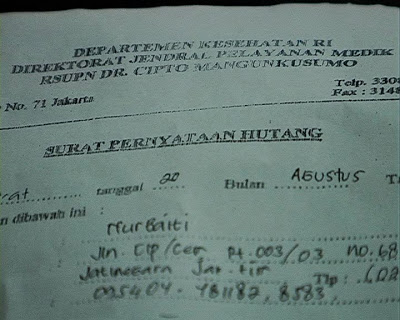 DEPARTEMEN KESEHATAN RI
DIREKTORAT JENDRAL PELAYANAN MEDIK
RSUPN DR. CIPTO MANGUNKUSUMO
Telp. 3308
No. 71 Jakarta Fax : 3148
SURAT PERNYATAAN HUTANG
tanggal 20 Bulan AGUSTUS
dibawah ini :
Nurbaiti
Jln. Cip/Cem Rt. 003/03 no. 68
Jatinegara Jak. tim Tlp :
095404. 781182, 8583,